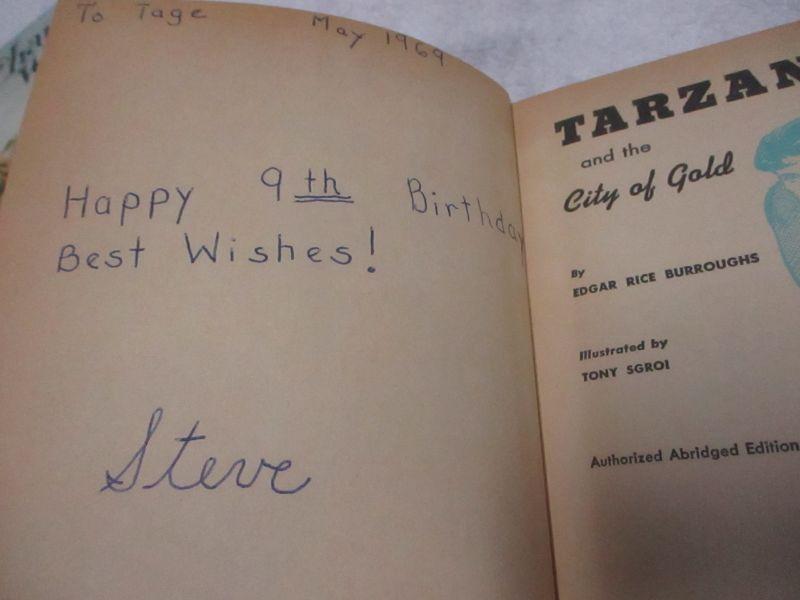 To Tage May 1969
Happy 9th Birthday
Best Wishes!
Steve
TARZAN
and the
City of Gold
By
EDGAR RICE BURROUGHS
Illustrated by
TONY SGROI
Authorized Abridged Edition